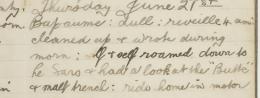 Thursday June 21st
Bapaume: Dull: reveille 4 am
cleaned up & wrote during
morn: & self roamed down to
le Sars & had a look at the "Butte"
& maf trench: ride home in motor